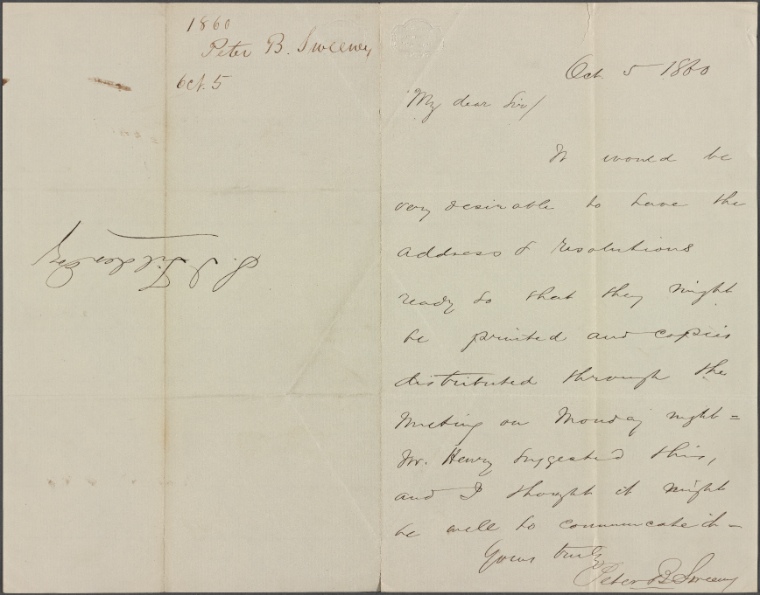 1860
Peter B. Sweeney
Oct. 5
S. J. Tilden Esq
Oct 5 1860
My dear Sir/
It would be
very desirable to have the
address & resolutions
ready so that they might
be printed and copies
distributed through the
Meeting on Monday night =
Mr. Henry suggested this,
and I thought it might
be well to communicate it -
Yours truly
Peter B Sweeny